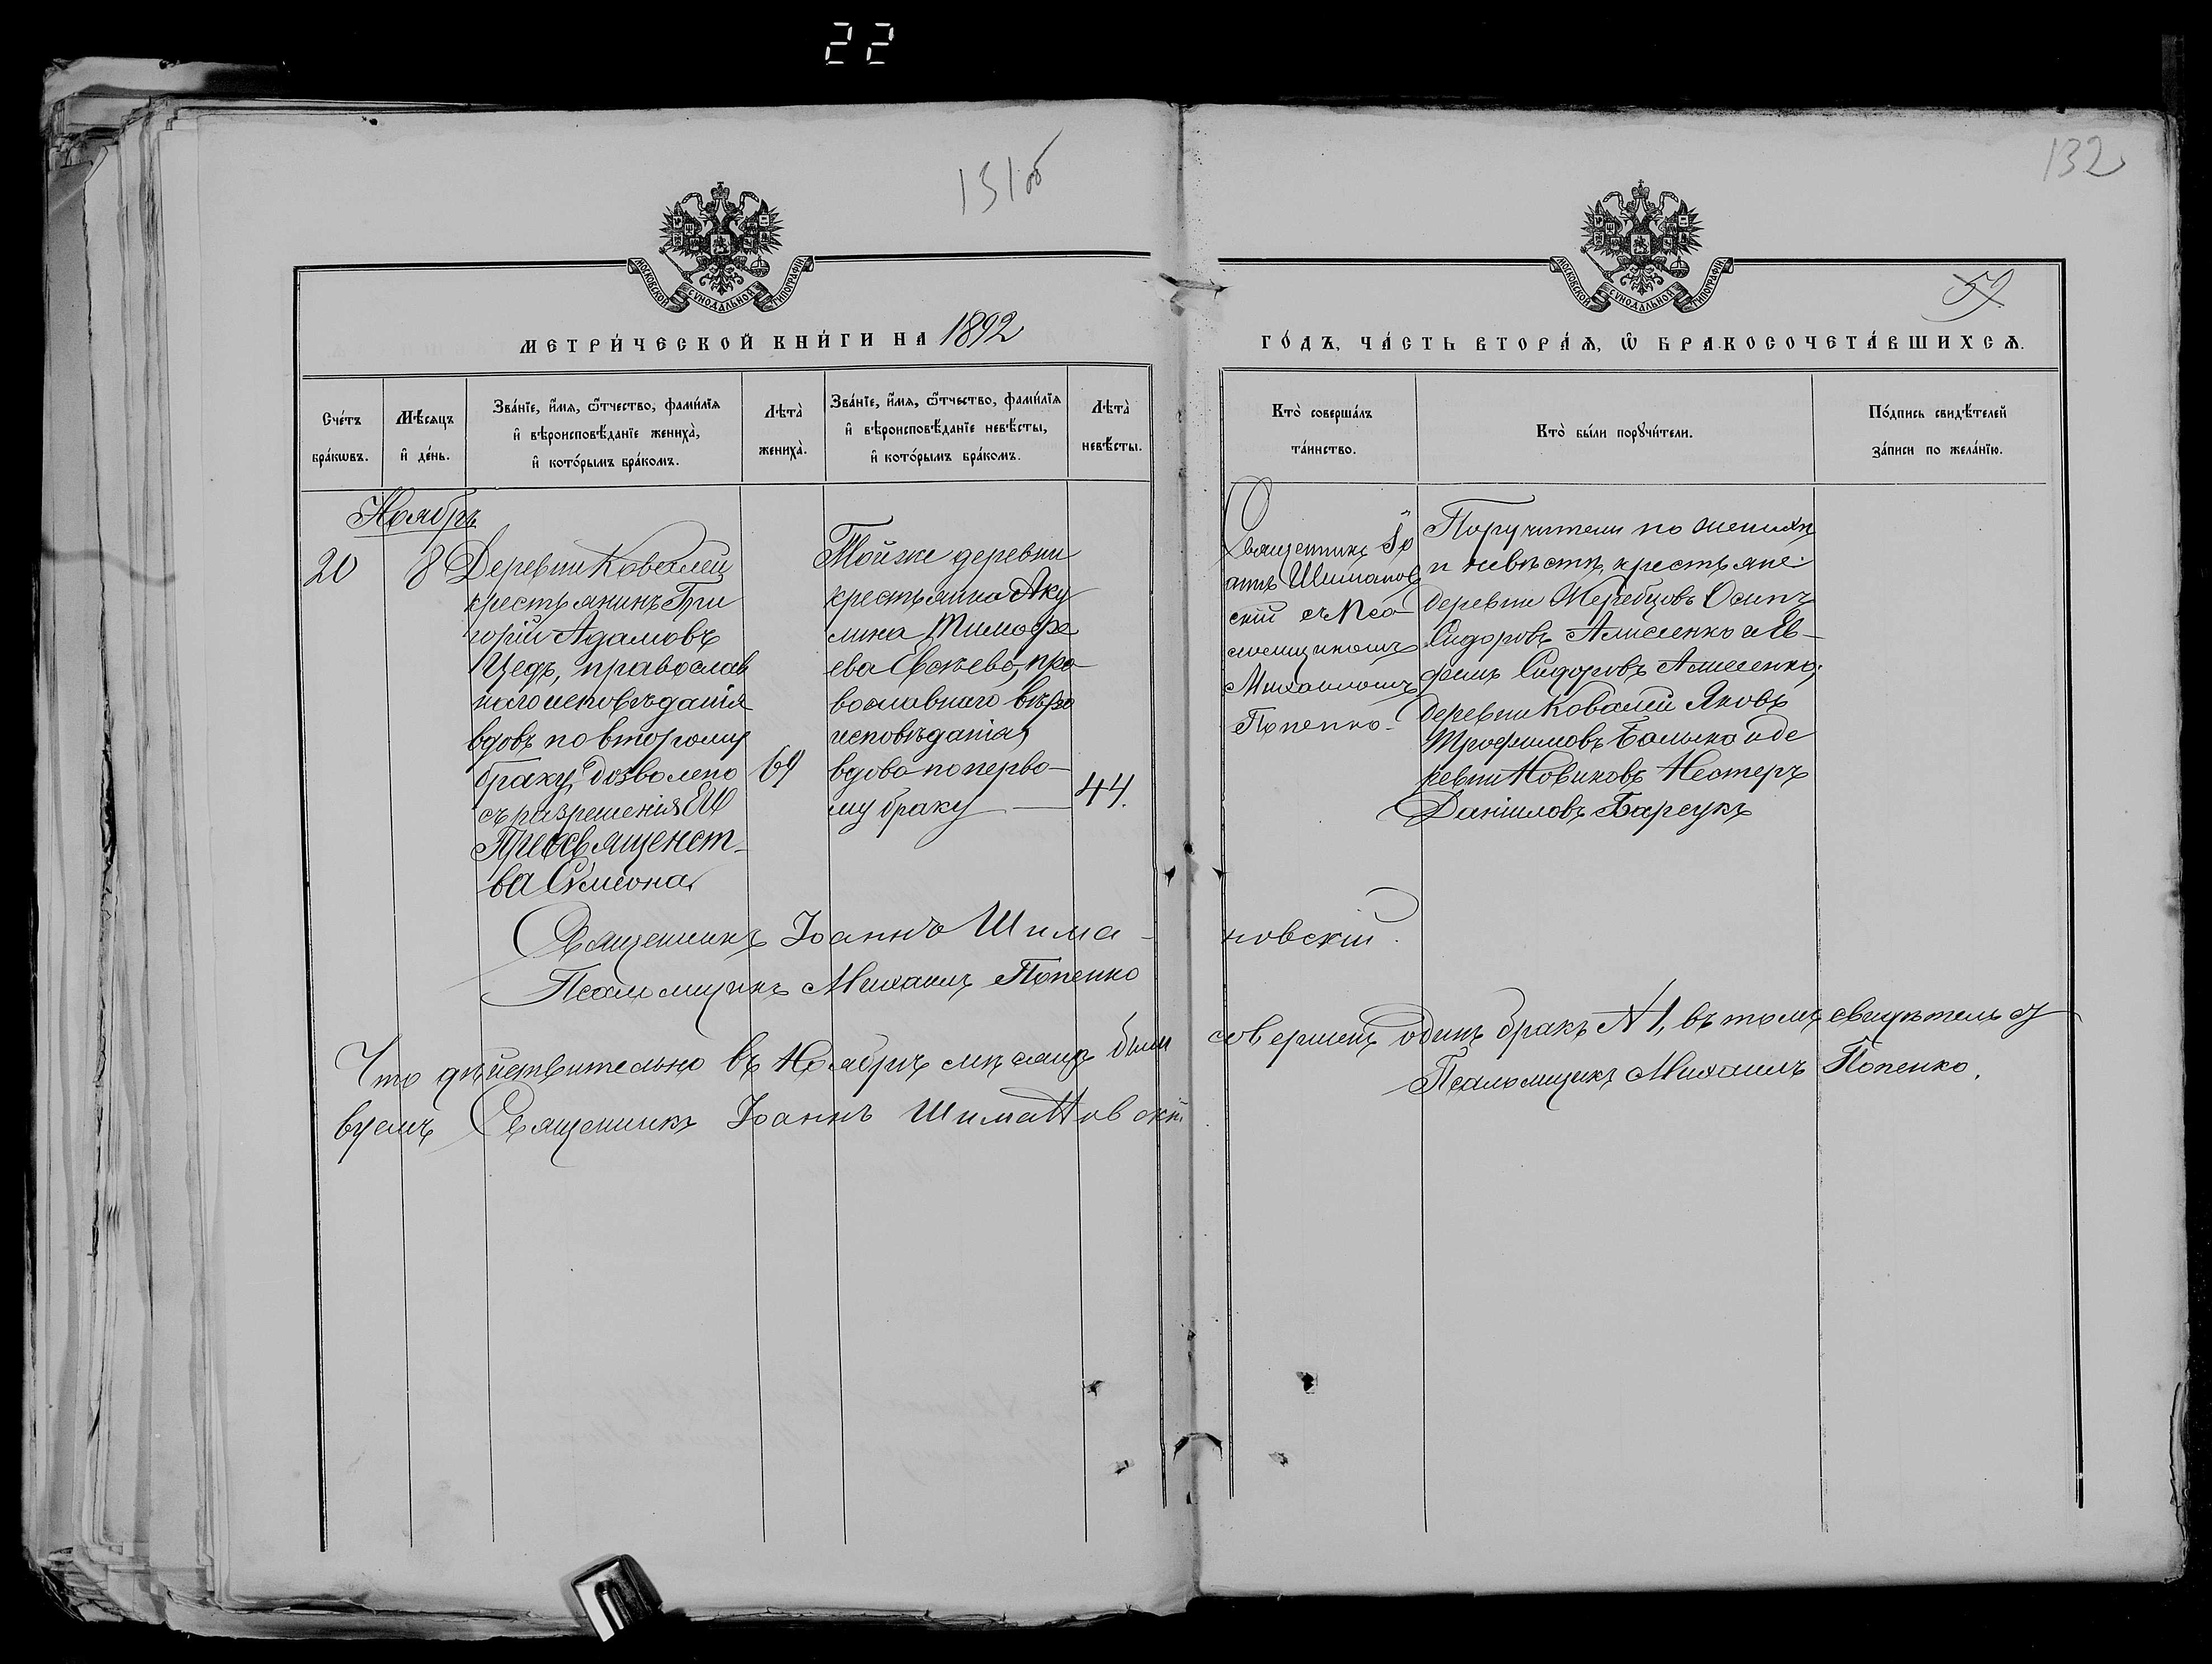 22
131об
132
МОСКОВСКОЙ СѴНОДАЛЬНОЙ ТИПОГРАФІИ
МОСКОВСКОЙ СѴНОДАЛЬНОЙ ТИПОГРАФІИ
59
МЕТРИ́ЧЕСКОЙ КНИ́ГИ НА 1892
ГО́ДЪ, ЧА́СТЬ ВТОРА́Ѧ, Ѿ БРАКОСОЧЕТА́ВШИХСѦ.
Сче́тъ
бра́кѡвъ.
Мѣ́сяцъ
и҆ де́нь.
Зва́нїе, и҆́мя, ѻ҆́тчество, фами́лїя
и҆ вѣроисповѣ́данїе жениха̀,
и҆ кото́рымъ бра́комъ.
Лѣта̀
жениха̀.
Зва́нїе, и҆́мя, ѻ҆́тчество, фами́лїя
и҆ вѣроисповѣ́данїе невѣ́сты,
и҆ кото́рымъ бра́комъ.
Лѣта̀
невѣ́сты.
Кто̀ соверша́лъ
та́инство.
Кто̀ бы́ли порꙋчи́тели.
По́дпись свидѣ́телей
за́писи по жела́нїю.
Ноябрь
20
8
Деревни Ковалей
крестьянинъ Гри
горій Адамовъ
Цедъ, православ
наго исповѣданія
вдовъ по второму
браку, дозволено
съ разрешенія ЕГО
Преосвященст-
ва Сѵмеона
69
Той же деревни
крестьянка Аку
лина Тимофе
ева Евсѣева, пра-
вославнаго вѣро
исповѣданія,
вдова по перво-
му браку
44.
Священникъ Іо
аннъ Шиманов
скій съ Пса-
ломщикомъ
Михаиломъ
Попенко.
Поручители по женихѣ
и невѣстѣ, крестьяне:
деревни Жеребцовъ Осипъ
Сидоровъ Алисеенко и Ев-
фимъ Сидоровъ Алисеенко;
деревни Ковалей Яковъ
Трофимовъ Балыко и де
ревни Новиковъ Нестеръ
Даніиловъ Барсукъ
Священникъ Іоаннъ Шима-новскій.
Псаломщикъ Михаилъ Попенко
Что дѣйствительно въ Ноябрѣ мѣсяцѣ былъ совершенъ одинъ бракъ №1, въ томъ свидѣтельст
вуемъ Священникъ Іоаннъ Шимановскій Псаломщикъ Михаилъ Попенко.